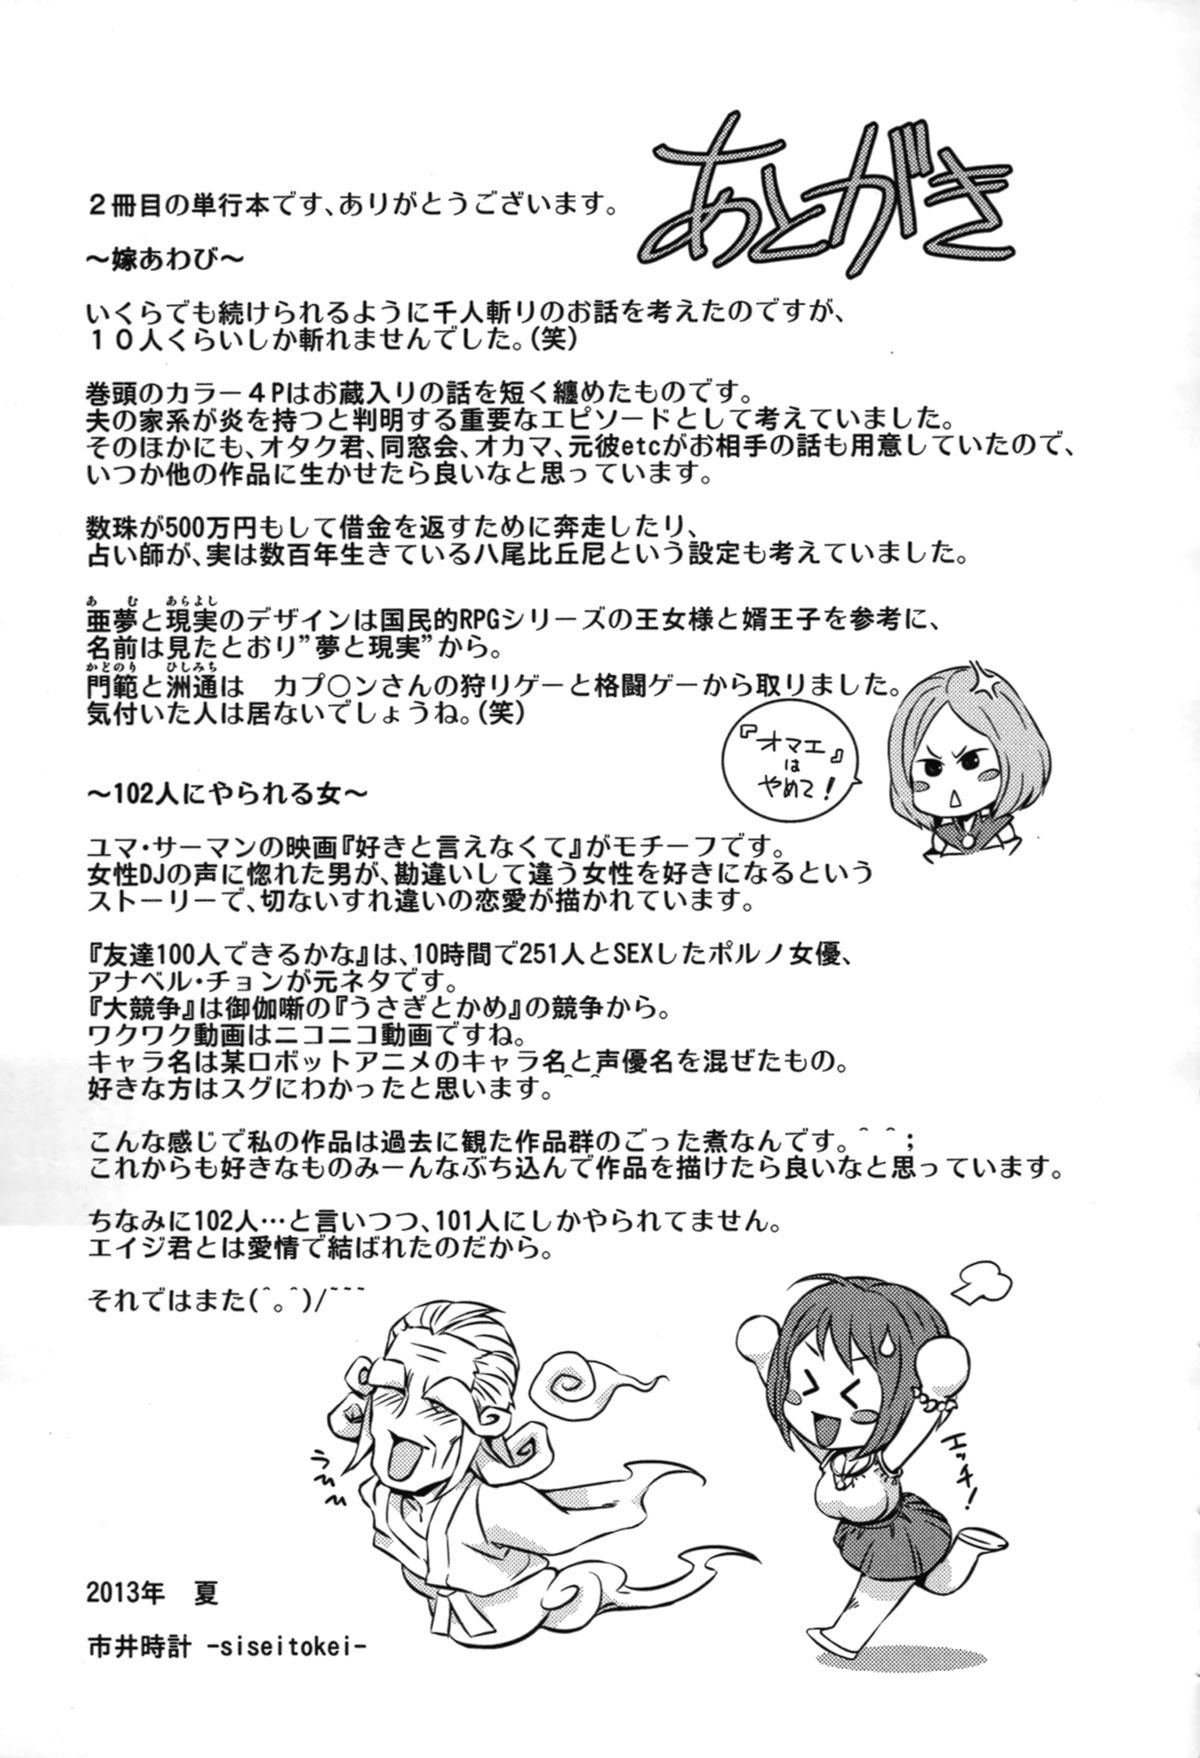 あとがき
２冊目の単行本です、ありがとうございます。
～嫁あわび～
いくらでも続けられるように千人斬りのお話を考えたのですが、
１０人くらいしか斬れませんでした。(笑)
巻頭のカラー４Pはお蔵入りの話を短く纏めたものです。
夫の家系が炎を持つと判明する重要なエピソードとして考えていました。
そのほかにも、オタク君、同窓会、オカマ、元彼etcがお相手の話も用意していたので、
いつか他の作品に生かせたら良いなと思っています。
数珠が500万円もして借金を返すために奔走したり、
占い師が、実は数百年生きている八尾比丘尼という設定も考えていました。
あむ　あらよし
亜夢と現実のデザインは国民的RPGシリーズの王女様と婿王子を参考に、
名前は見たとおり”夢と現実”から。
かどのり　ひしみち
門範と洲通は　カプ〇ンさんの狩りゲーと格闘ゲーから取りました。
気付いた人は居ないでしょうね。(笑)
『オマエ』
は
やめて！
～102人にやられる女～
ユマ・サーマンの映画『好きと言えなくて』がモチーフです。
女性DJの声に惚れた男が、勘違いして違う女性を好きになるという
ストーリーで、切ないすれ違いの恋愛が描かれています。
『友達100人できるかな』は、10時間で251人とSEXしたポルノ女優、
アナベル・チョンが元ネタです。
『大競争』は御伽噺の『うさぎとかめ』の競争から。
ワクワク動画はニコニコ動画ですね。
キャラ名は某ロボットアニメのキャラ名と声優名を混ぜたもの。
好きな方はスグにわかったと思います。＾＾
こんな感じで私の作品は過去に観た作品群のごった煮なんです。＾＾；
これからも好きなものみーんなぶち込んで作品を描けたら良いなと思っています。
ちなみに102人…と言いつつ、101人にしかやられてません。
エイジ君とは愛情で結ばれたのだから。
それではまた(＾。＾)/~~~
うひひ
エッチ！
2013年　夏
市井時計 -siseitokei-